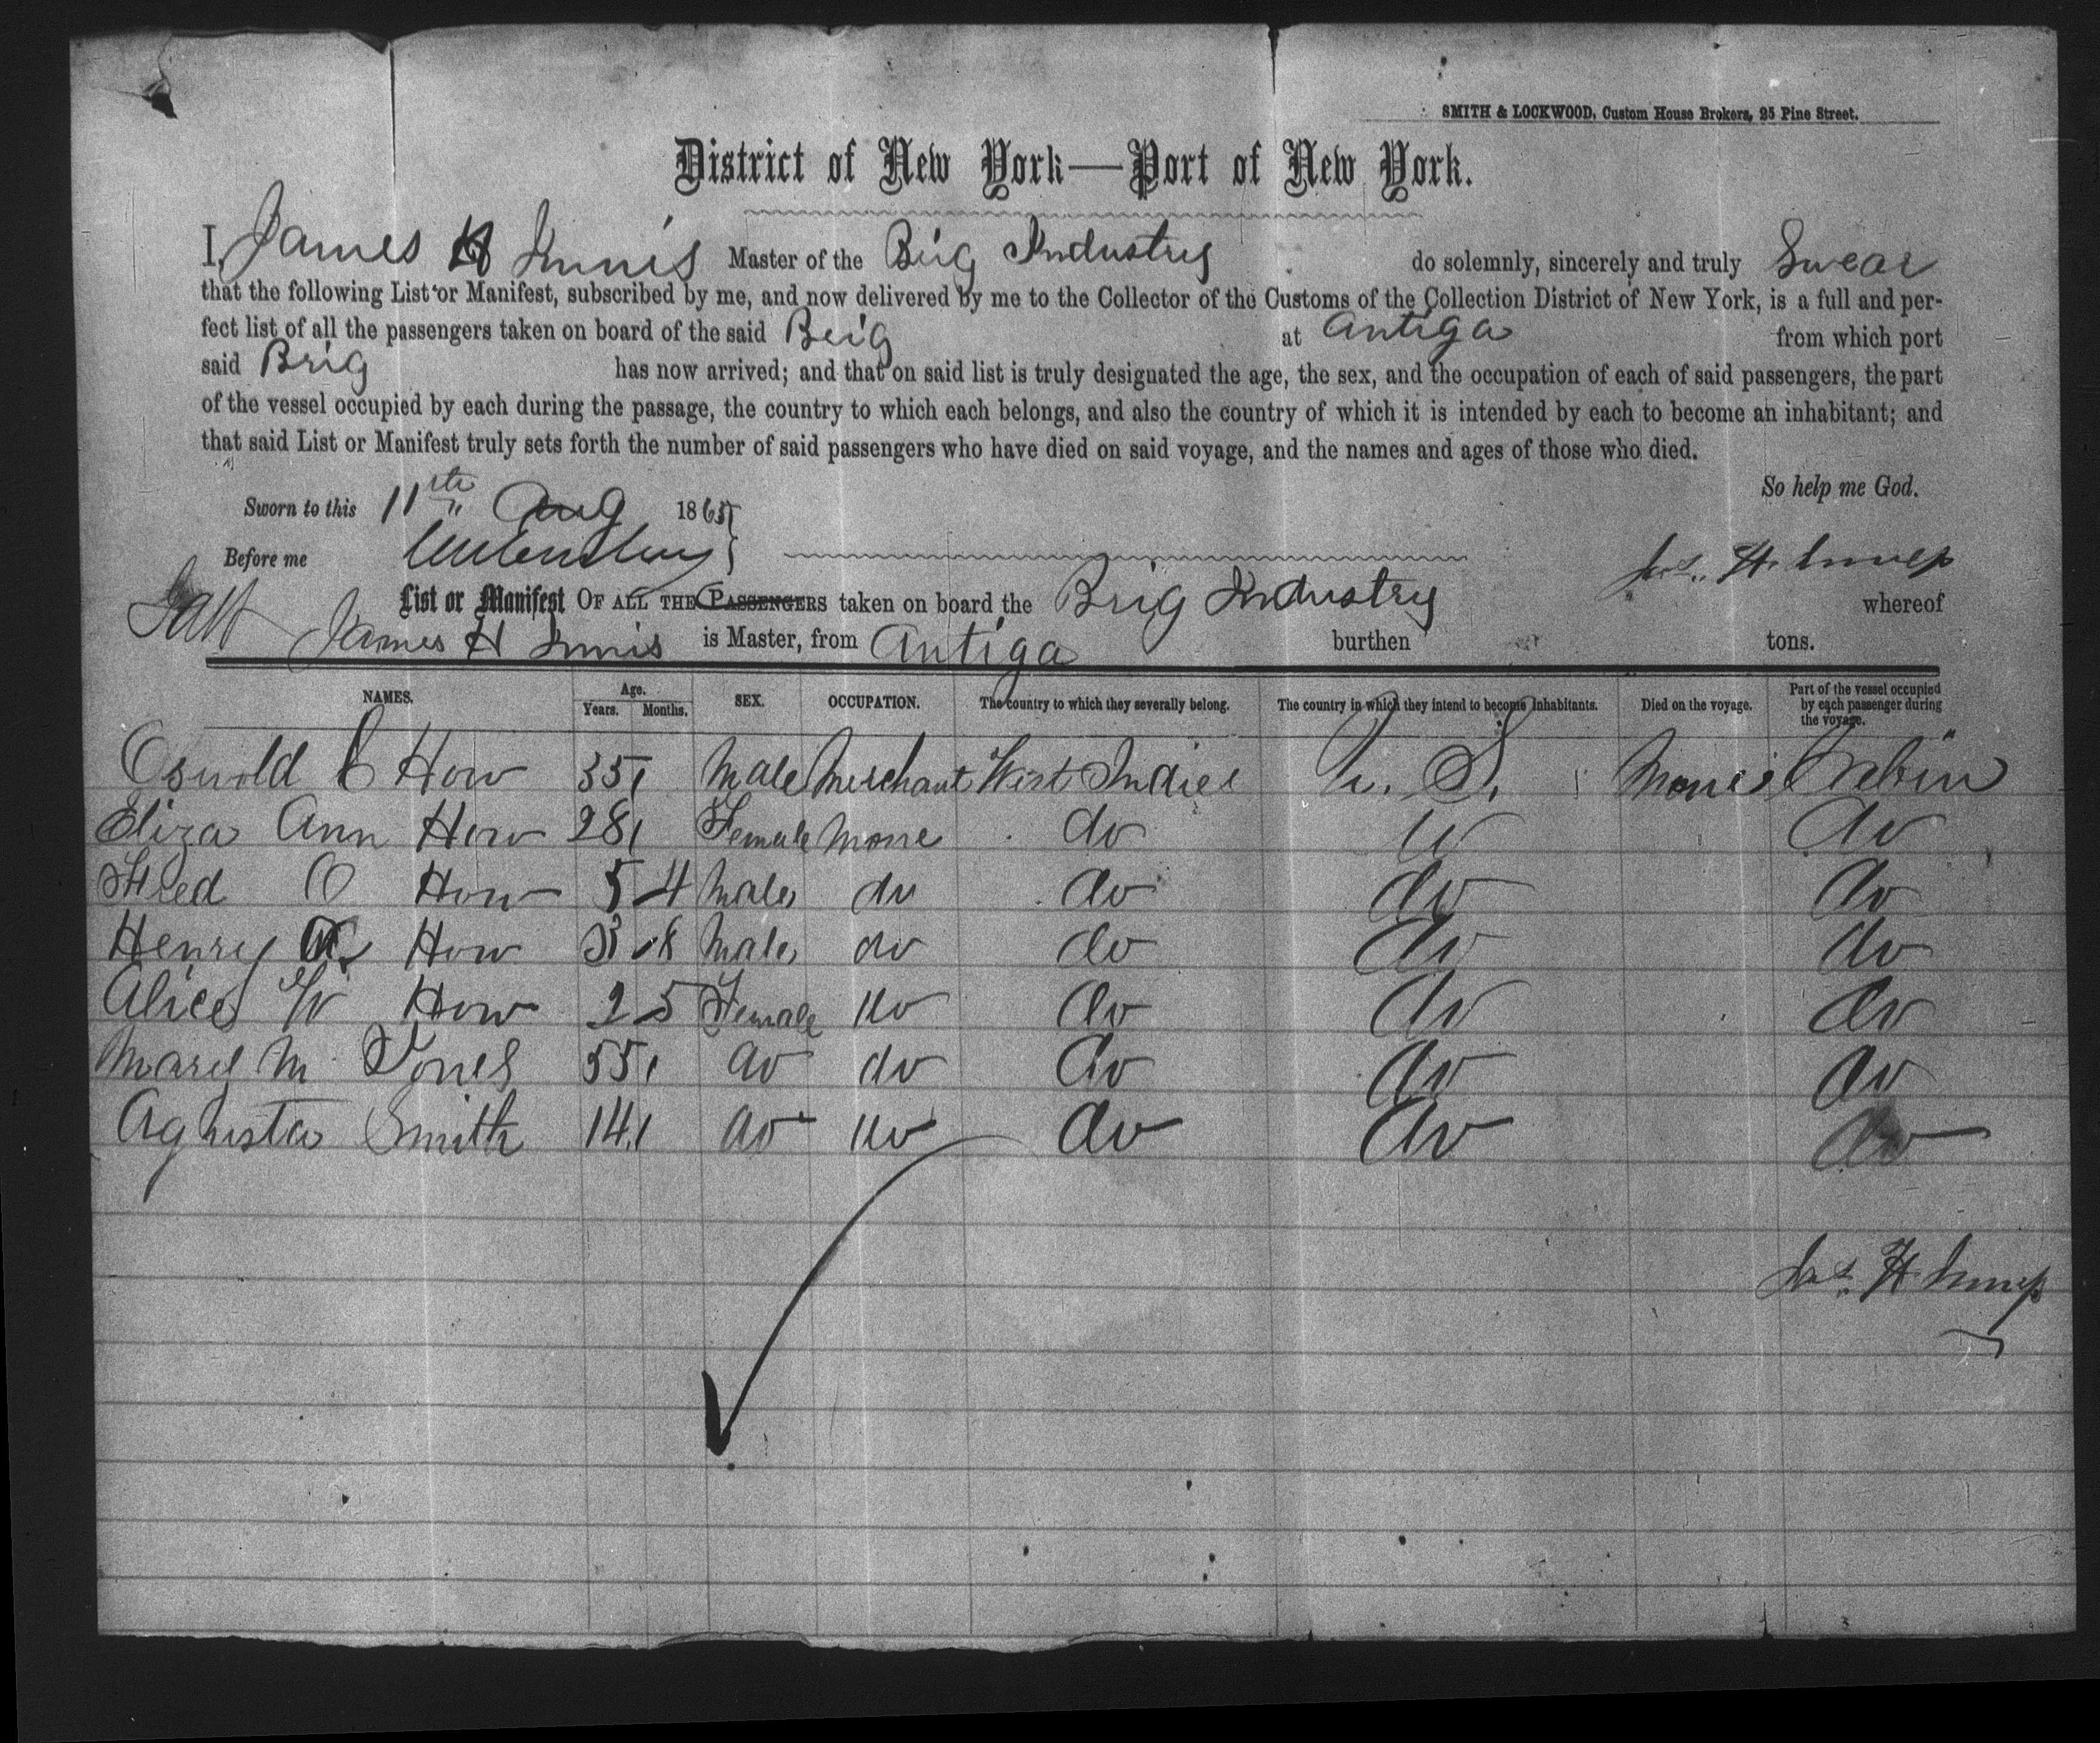 SMITH & LOCKWOOD, Custom House Brokers, 25 Pine Street.
District of New York—Port of New York.
I, James H Innis Master of the Brig Industry do solemnly, sincerely and truly Swear
that the following List or Manifest, subscribed by me, and now delivered by me to the Collector of the Customs of the Collection District of New York, is a full and per-
fect list of all the passengers taken on board of the said Brig at Antiga from which port
said Brig has now arrived; and that on said list is truly designated the age, the sex, and the occupation of each of said passengers, the part
of the vessel occupied by each during the passage, the country to which each belongs, and also the country of which it is intended by each to become an inhabitant; and
that said List or Manifest truly sets forth the number of said passengers who have died on said voyage, and the names and ages of those who died.
So help me God.
Sworn to this 11th Aug 1865
Before me
Jas. H. Innis
List or Manifest OF ALL THE PASSENGERS taken on board the Brig Industry whereof
James H Innis is Master, from Antiga burthen tons.
NAMES. Age. Years. Months. SEX. OCCUPATION. The country to which they severally belong. The country in which they intend to become inhabitants. Died on the voyage. Part of the vessel occupied by each passenger during the voyage.
Oswold C How 35 Male Merchant West Indies U. S. None Cabin
Eliza Ann How 28 Female None do do
Fred O How 5 4 Male do do do do
Henry How 3 8 Male do do do do
Alice W How 2 5 Female do do do do
Mary M Jones 55 do do do do do
Agusta Smith 14 do do do do do
Jas. H Innis